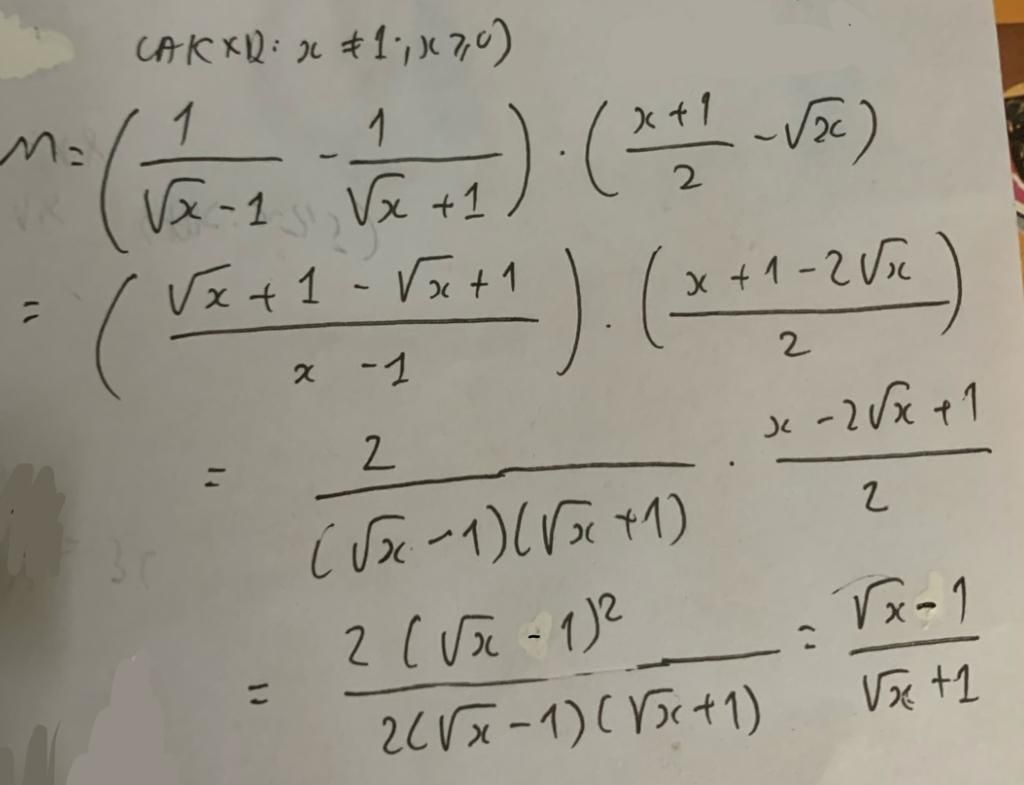 (ĐKXĐ: x ≠ 1; x ≥ 0)
M = (1/(√x - 1) - 1/(√x + 1)) . ((x + 1)/2 - √x)
= ((√x + 1 - √x + 1)/(x - 1)) . ((x + 1 - 2√x)/2)
= 2/((√x - 1)(√x + 1)) . (x - 2√x + 1)/2
= 2(√x - 1)²/(2(√x - 1)(√x + 1)) = (√x - 1)/(√x + 1)